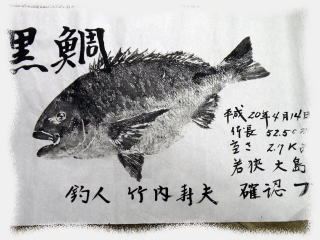 黒鯛
平成20年4月14日
竹長 52.5cm
重さ 2.7K
若狭大島
釣人 竹内寿夫 確認